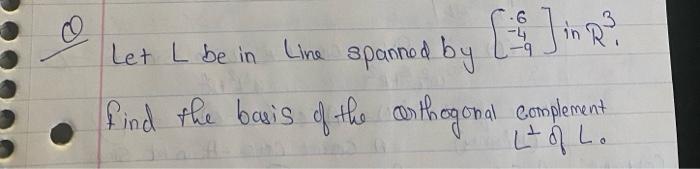 Q
Let L be in Line spanned by [-6 -4 -9] in R³.
find the basis of the orthogonal complement
L⊥ of L.